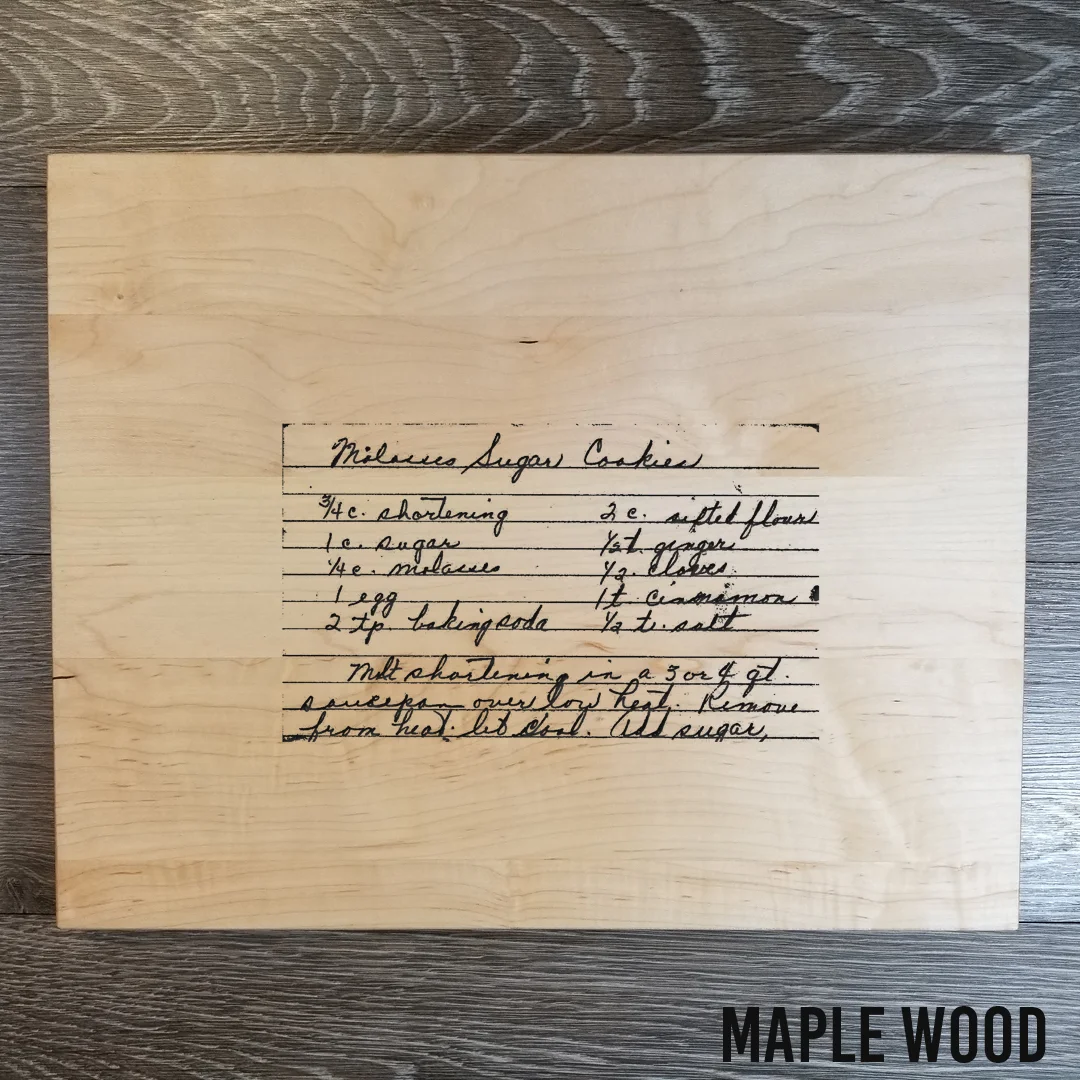 Molasses Sugar Cookies
3/4 c. shortening 2 c. sifted flour
1 c. sugar 1/2 t. ginger
1/4 c. molasses 1/2. cloves
1 egg 1 t. cinnamon
2 tp. baking soda 1/2 t. salt
Melt shortening in a 3 or 4 qt.
saucepan over low heat. Remove
from heat. let cool. Add sugar,
MAPLE WOOD